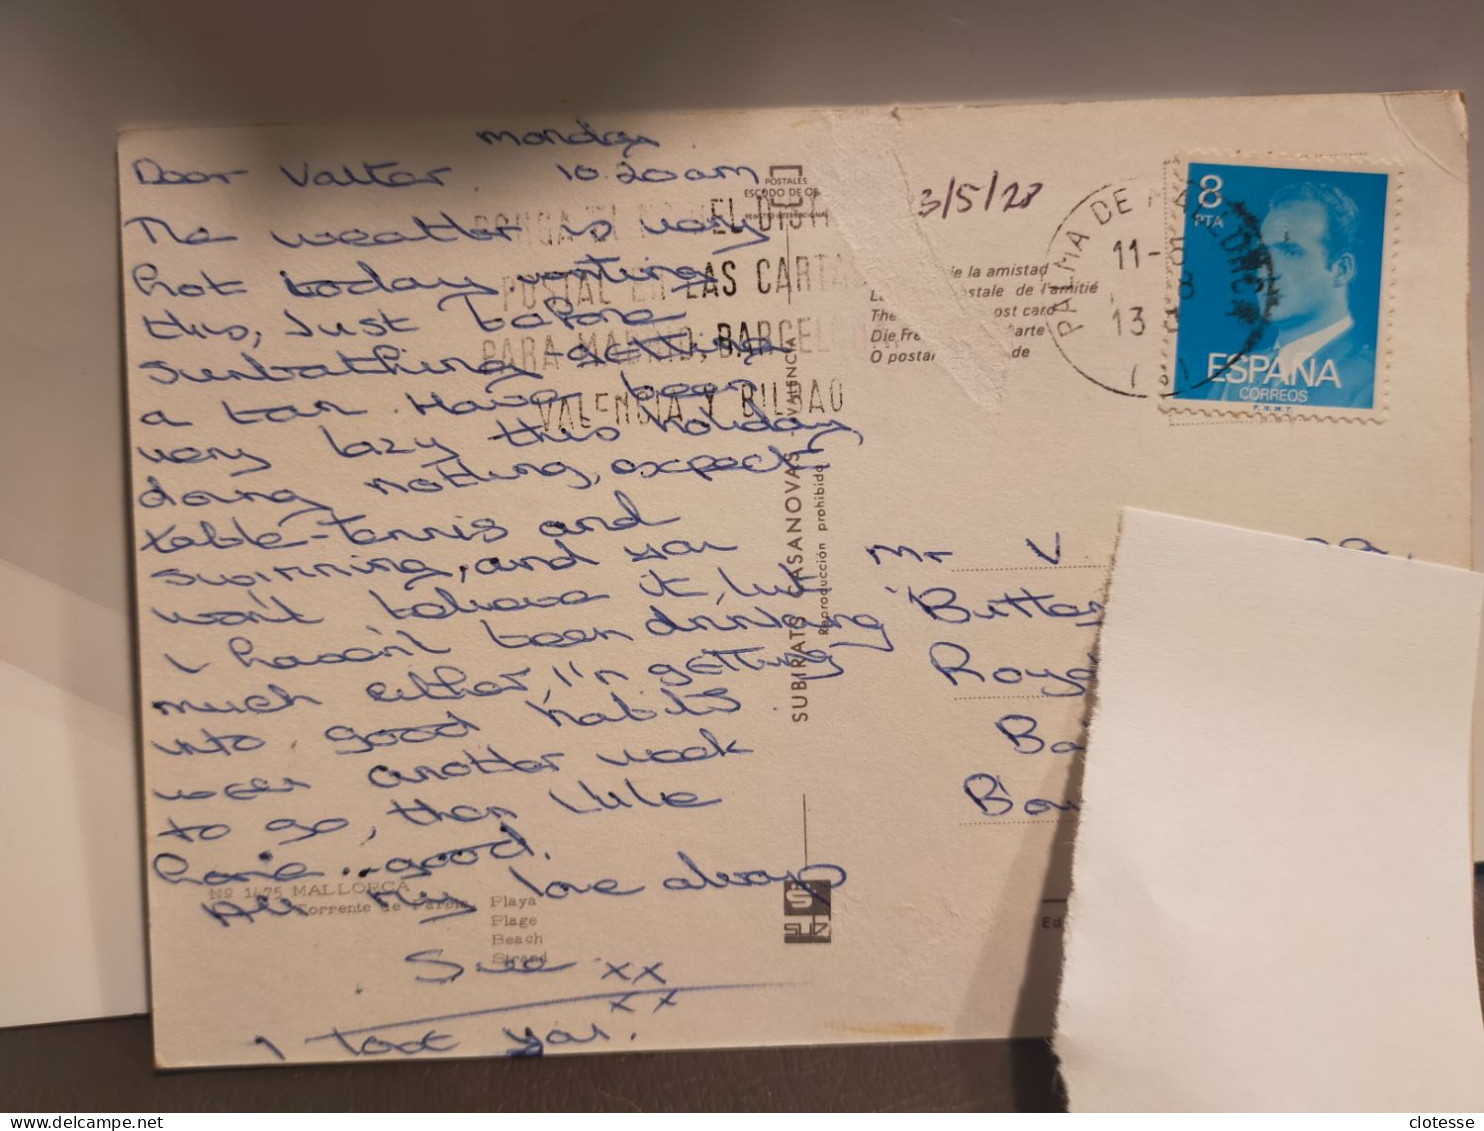 Monday
Dear Valter 10.20am
The weather is very
hot today writing
this, Just before
sunbathing - getting
a tan. Have been
very lazy this holiday
doing nothing, expect
table-tennis and
swimming, and you
won't believe it, but
I haven't been drinking
much either, I'm getting
into good habits
well another week
to go, then
home...good.
All My love always
Sue xx
xx
I love you!
POSTALES
ESCUDO DE
3/5/28
PONGA EL DIST
POSTAL EN LAS CARTAS
PARA MADRID, BARCELONA
VALENCIA Y BILBAO
la amistad
stale de l'amitié
The ost card
Die Fre arte
O postal de
PALMA DE MALLORCA
11-
13
8
PTA
ESPAÑA
CORREOS
F.N.M.T.
SUBIRATS CASANOVAS - VALENCIA
Reproducción prohibida
Mr V
Roya
Ba
Bo
Nº 1475 MALLORCA
Torrente de Pareis.
Playa
Plage
Beach
Strand
Ed
clotesse